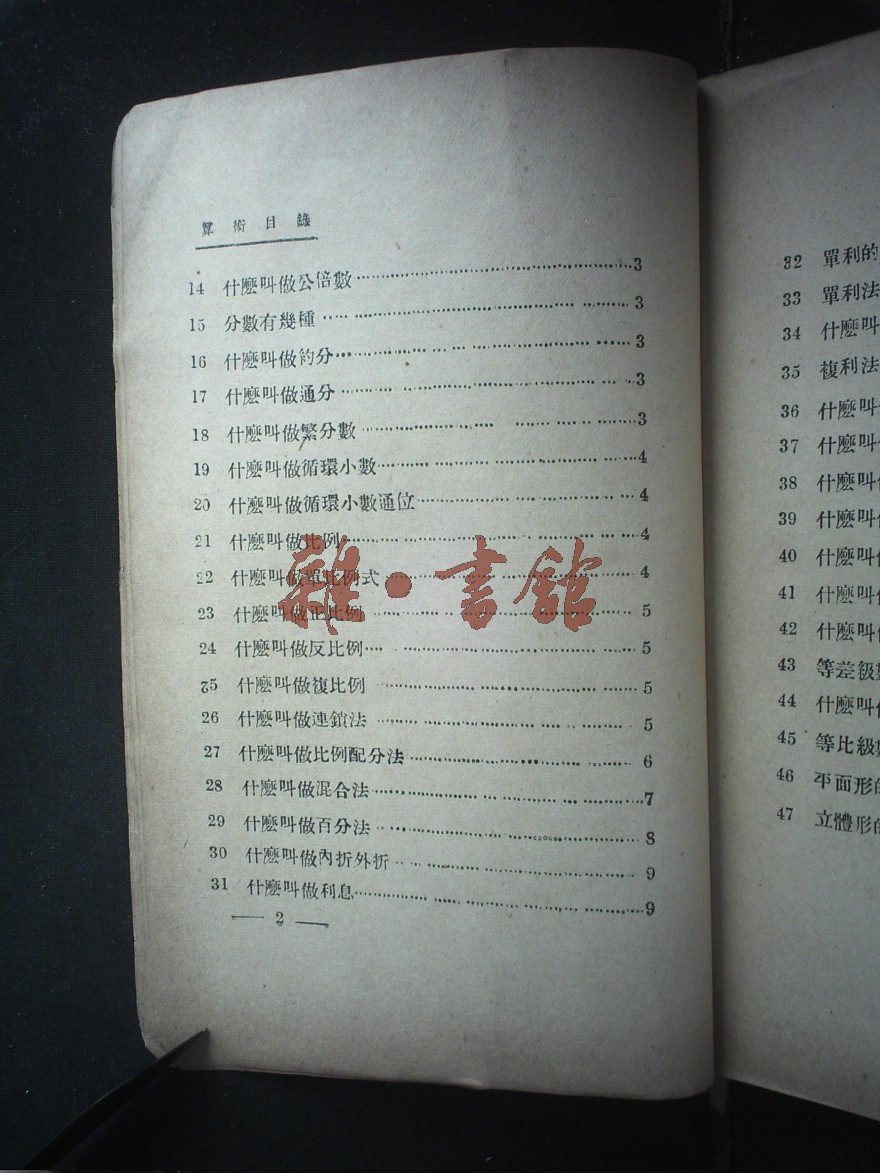 算術目錄
14 什麼叫做公倍數 3
15 分數有幾種 3
16 什麼叫做約分 3
17 什麼叫做通分 3
18 什麼叫做繁分數 3
19 什麼叫做循環小數 4
20 什麼叫做循環小數通位 4
21 什麼叫做比例 4
22 什麼叫做單比例式 4
23 什麼叫做正比例 5
24 什麼叫做反比例 5
25 什麼叫做複比例 5
26 什麼叫做連鎖法 5
27 什麼叫做比例配分法 6
28 什麼叫做混合法 7
29 什麼叫做百分法 8
30 什麼叫做內折外折 9
31 什麼叫做利息 9
— 2 —
雜·書館
32 單利的
33 單利法
34 什麼叫
35 複利法
36 什麼叫
37 什麼叫
38 什麼叫
39 什麼叫
40 什麼叫
41 什麼叫
42 什麼叫
43 等差級數
44 什麼叫
45 等比級數
46 平面形的
47 立體形的